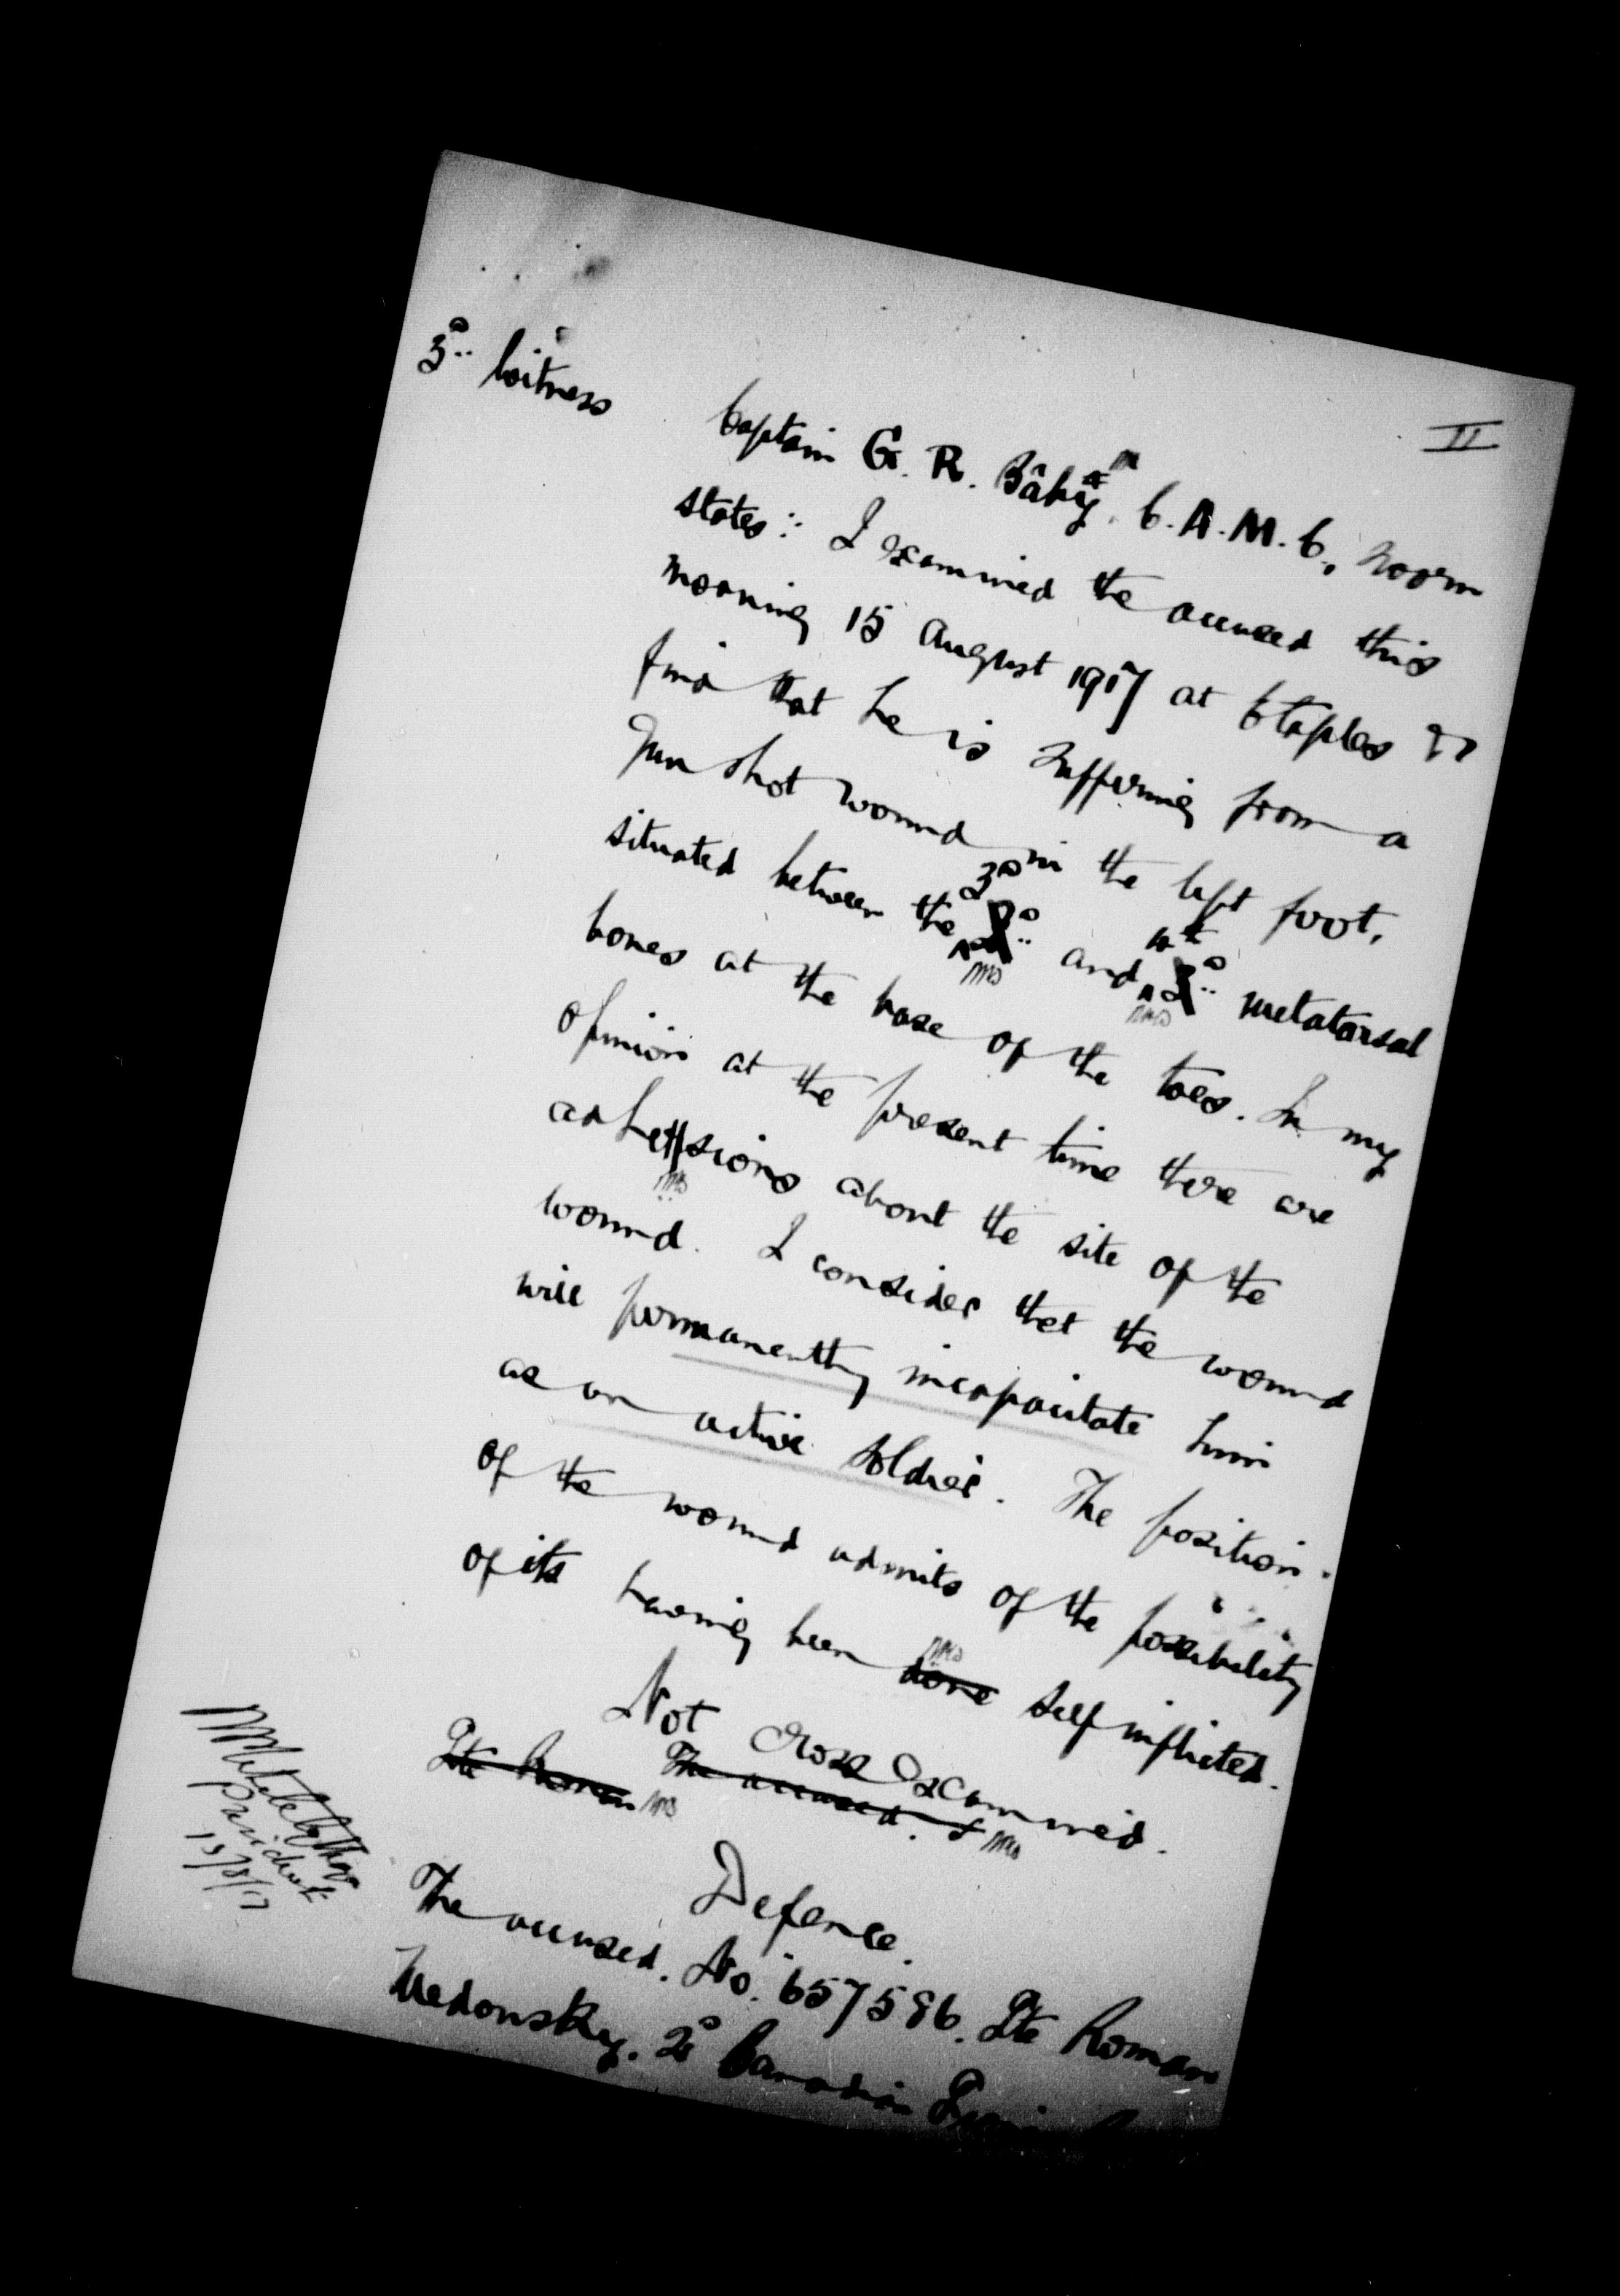 II
3rd Witness
Captain G. R. Baby, C.A.M.C., sworn
states:- I examined the accused this
morning 15 August 1917 at Etaples &
find that he is suffering from a
Gun shot wound in the left foot,
situated between the 3rd 2nd and 4th 3rd metatarsal
bones at the base of the toes. In my
opinion at the present time there are
adhesions about the site of the
wound. I consider that the wound
will permanently incapacitate him
as an active soldier. The position
of the wound admits of the possibility
of its having been done self inflicted.
Not Cross Examined.
The accused.
Defence.
The accused. No. 657586. Pte Roman
Nedonsky. 2nd Canadian
President
15/8/17